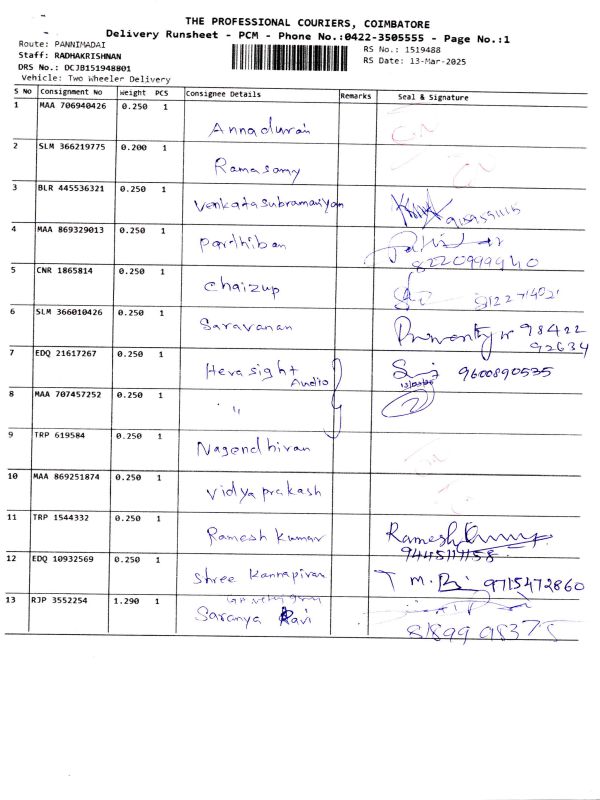 THE PROFESSIONAL COURIERS, COIMBATORE
Delivery Runsheet - PCM - Phone No.:0422-3505555 - Page No.:1
Route: PANNIMADAI
RS No.: 1519488
Staff: RADHAKRISHNAN
RS Date: 13-Mar-2025
DRS No.: DCJB151948801
Vehicle: Two Wheeler Delivery
S No Consignment No Weight PCS Consignee Details Remarks Seal & Signature
1 MAA 706940426 0.250 1 Annadurai
2 SLM 366219775 0.200 1 Ramasamy
3 BLR 445536321 0.250 1 Venkatasubramaniyan
4 MAA 869329013 0.250 1 Parthiban
8220999940
5 CNR 1865814 0.250 1 Chaizup
6 SLM 366010426 0.250 1 Saravanan 98422
92634
7 EDQ 21617267 0.250 1 Herasight Audio 9600890535
8 MAA 707457252 0.250 1 "
9 TRP 619584 0.250 1 Nagendhiran
10 MAA 869251874 0.250 1 Vidya prakash
11 TRP 1544332 0.250 1 Ramesh Kumar Ramesh
12 EDQ 10932569 0.250 1 Shree Kannapiran 9715472860
13 RJP 3552254 1.290 1 Saranya Ravi